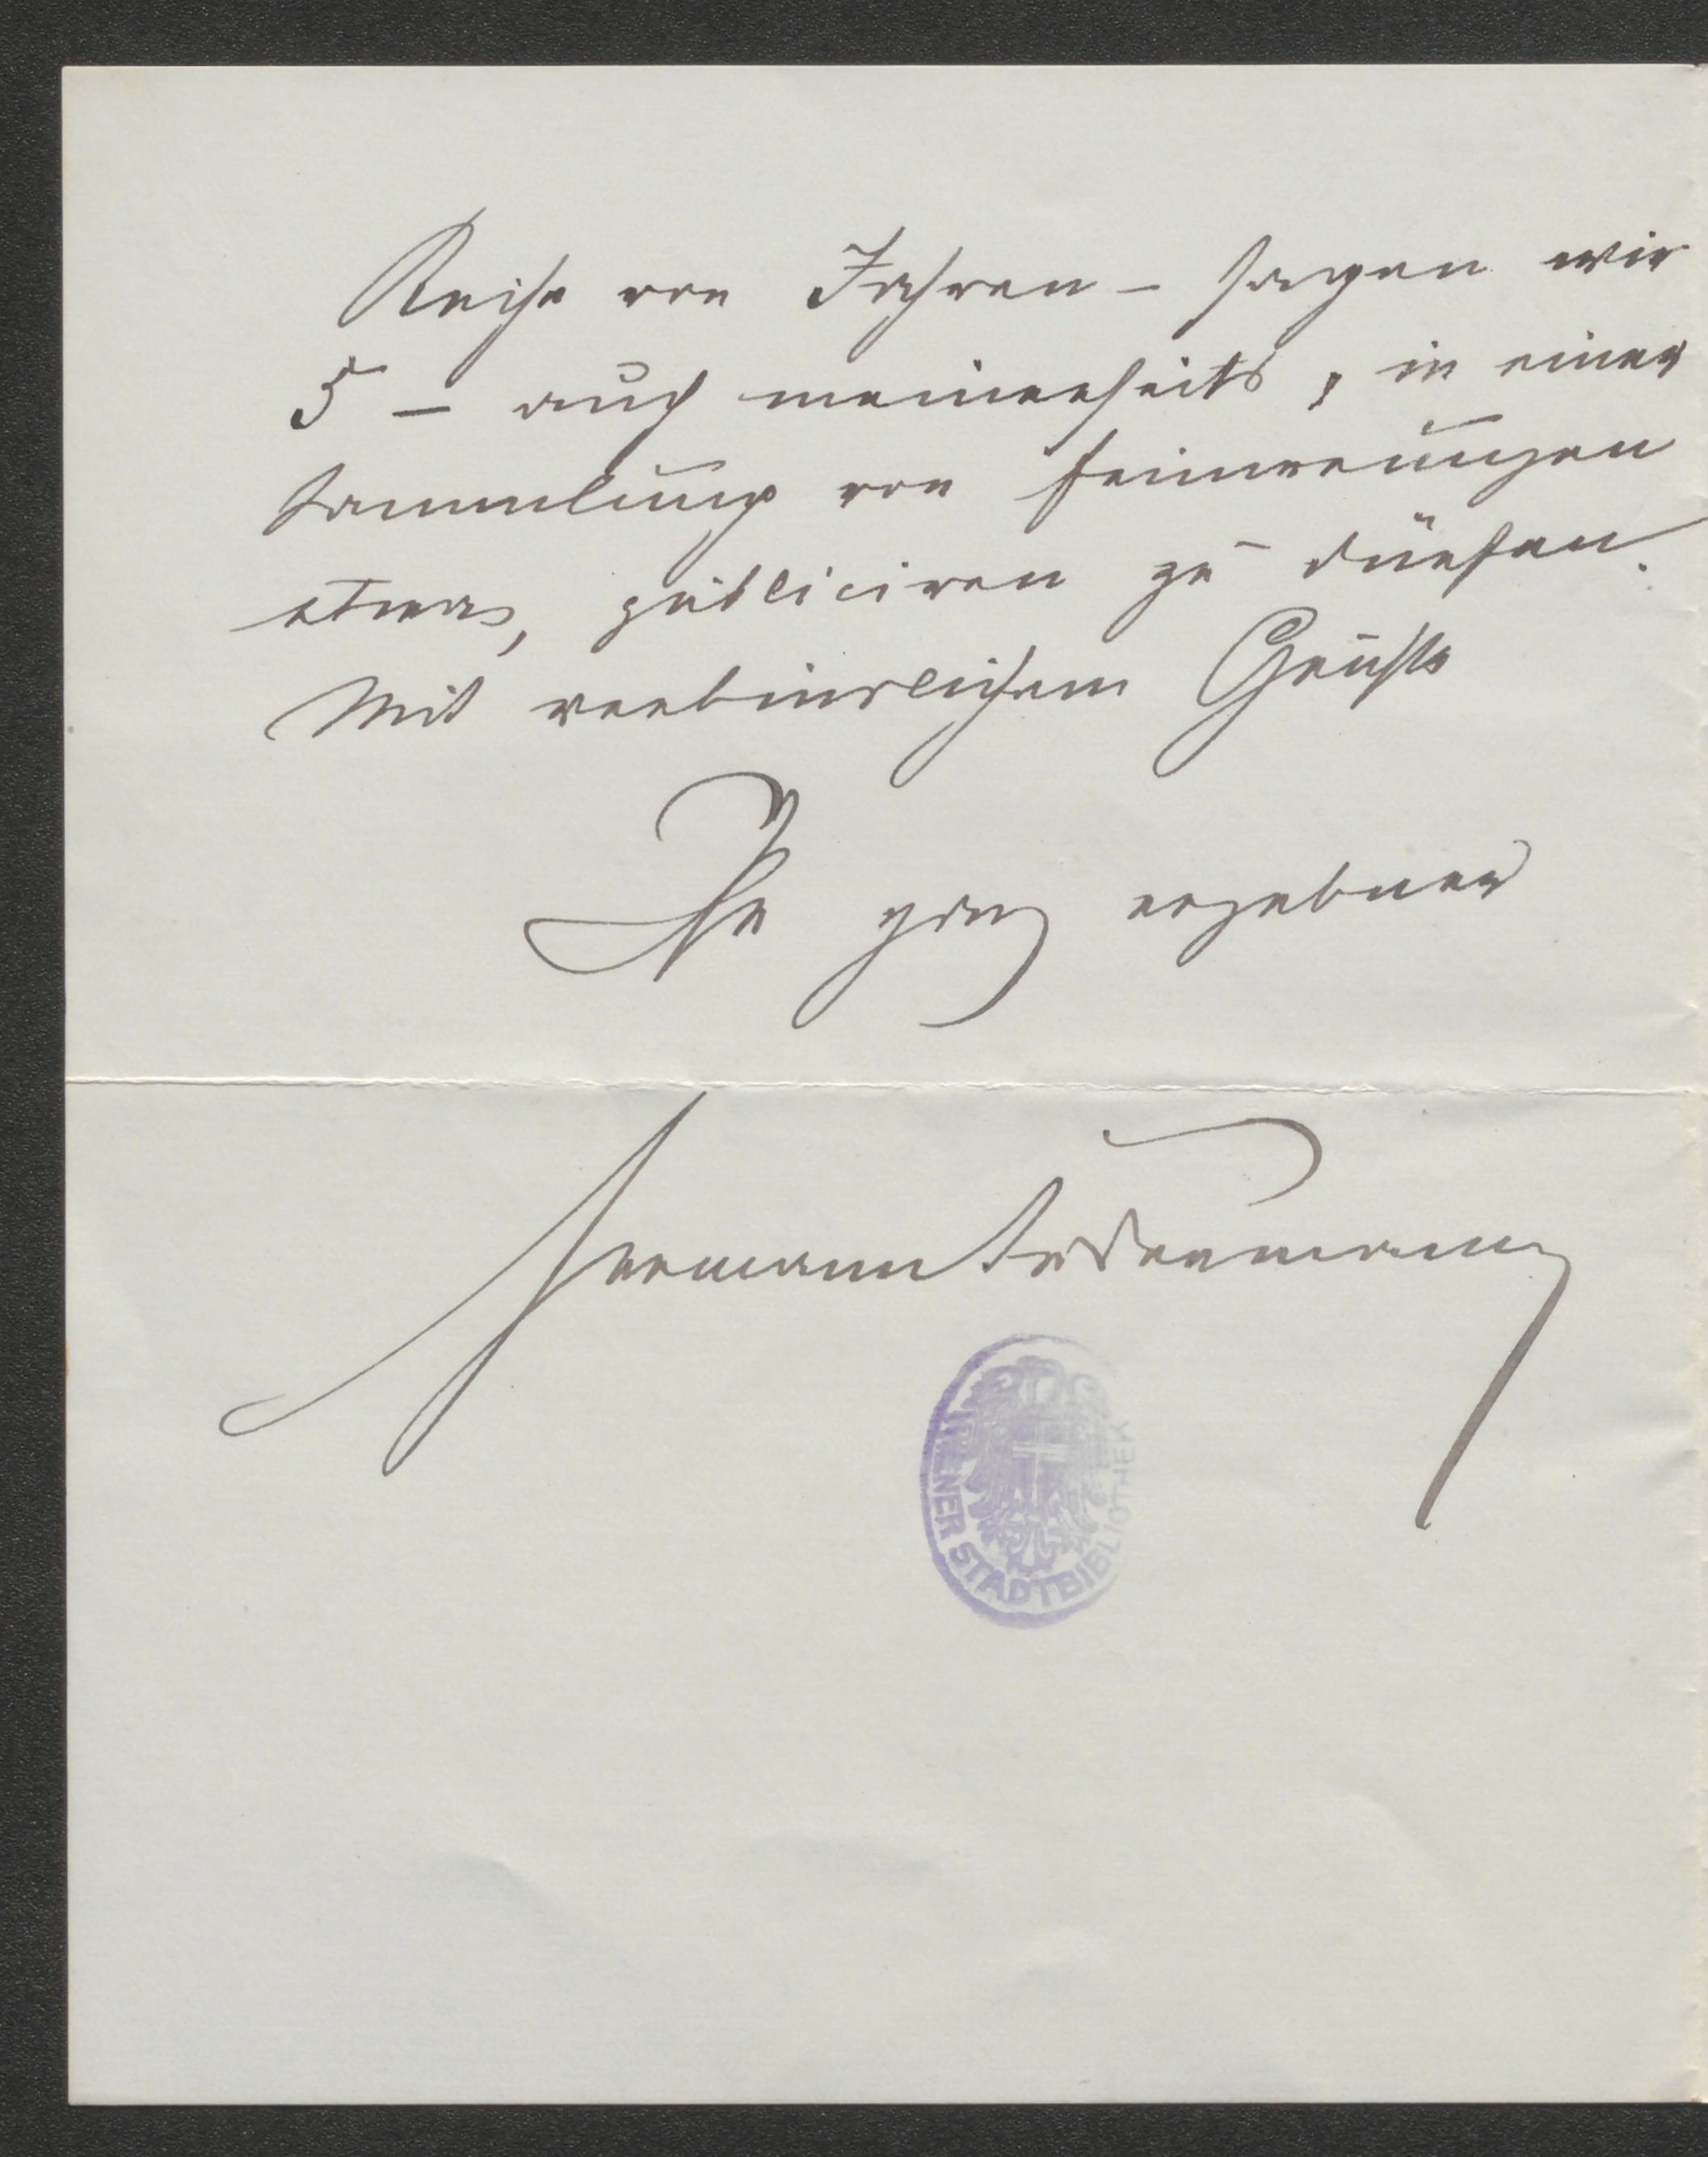 Reihe von Jahren – sagen wir
5 – auch meinerseits, in einer
Sammlung von Erinnerungen
etwa, publiciren zu dürfen.
Mit verbindlichem Gruße
Ihr ganz ergebner
Hermann Sudermann
WIENER STADTBIBLIOTHEK